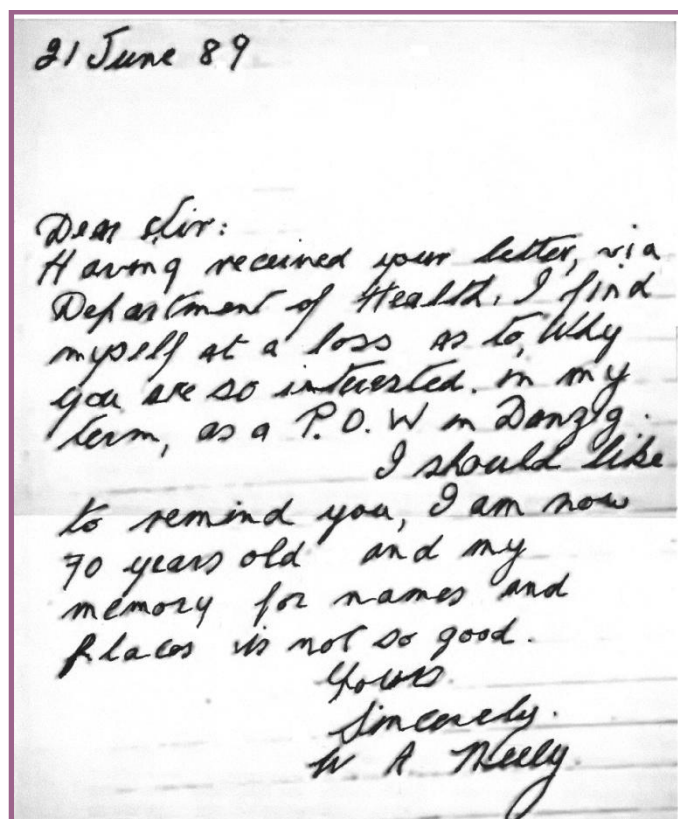 21 June 89
Dear Sir:
Having received your letter, via
Department of Health. I find
myself at a loss as to, Why
you are so interested. in my
term, as a P.O.W in Danzig.
I should like
to remind you, I am now
70 years old and my
memory for names and
places is not so good.
Yours.
Sincerely.
W A Neely.